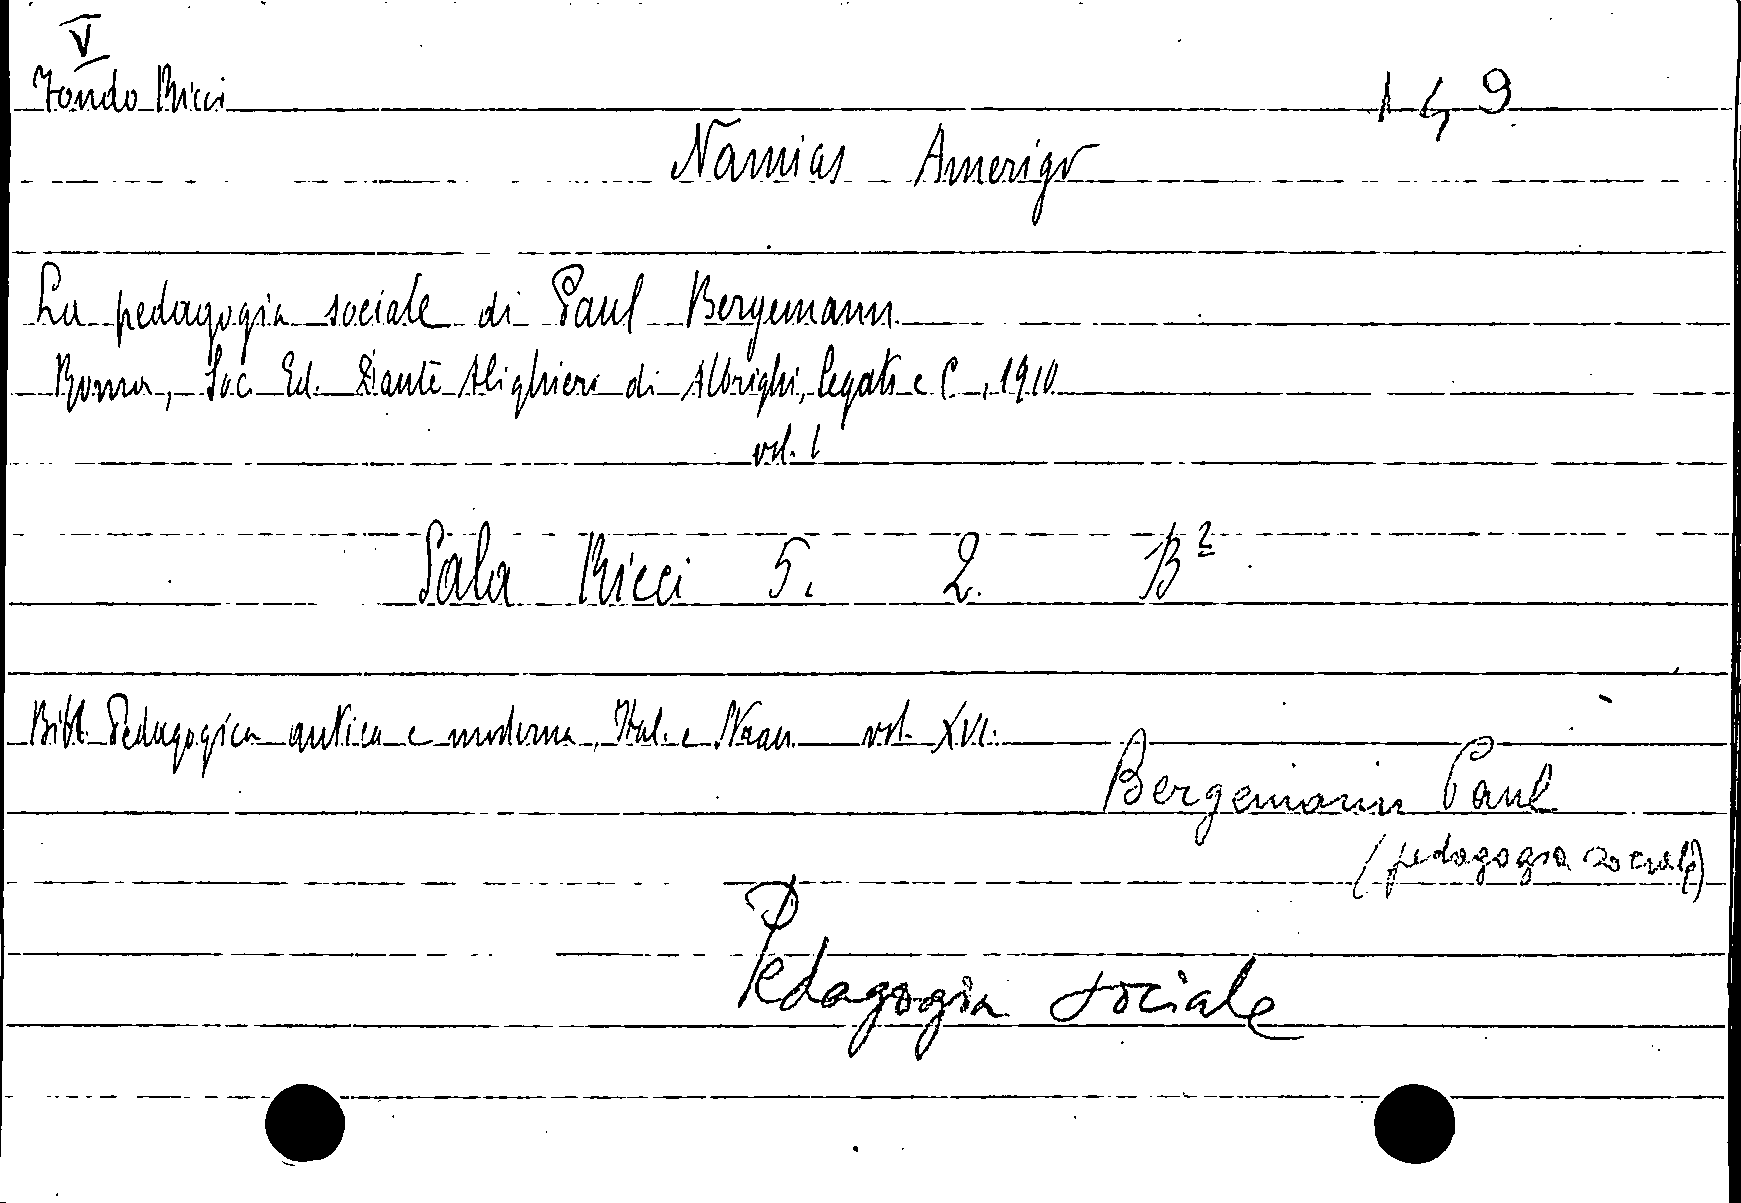 V
Fondo Ricci 149
Namias Amerigo
La pedagogia sociale di Paul Bergemann
Roma, Soc. Ed. Dante Alighieri di Albrighi, Segati e C., 1910
vol. 1
Sala Ricci 5. 2. B²
Bibl. Pedagogica antica e moderna, Ital. e vol. XVI.
Bergemann Paul
(pedagogia sociale)
Pedagogia sociale